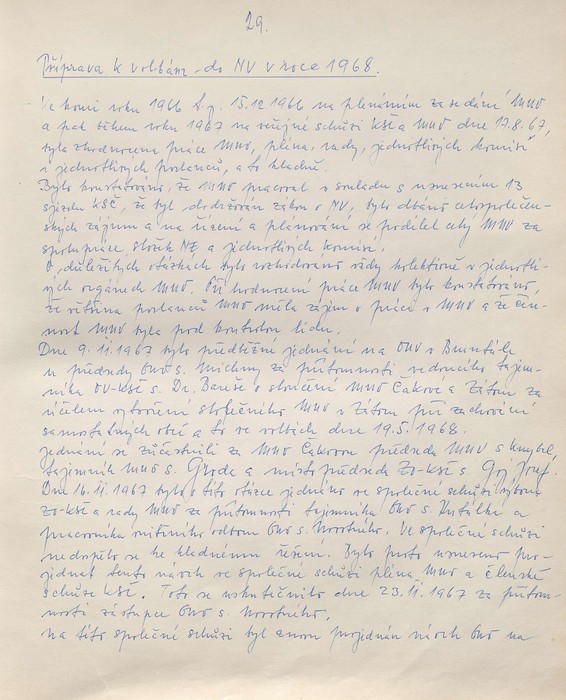 29.
Příprava k volbám do NV v roce 1968.
Ke konci roku 1966 t.j. 15.12.1966 na plenárním zasedání MNV
a pak během roku 1967 na veřejné schůzi KSČ a MNV dne 17.8.67,
byla zhodnocena práce MNV, pléna, rady, jednotlivých komisí
i jednotlivých poslanců, a to kladně.
Bylo konstatováno, že MNV pracoval v souladu s usnesením 13
sjezdu KSČ, že byl dodržován zákon o NV, bylo dbáno celospolečen-
ských zájmů a na řízení a plánování se podílel celý MNV za
spolupráce složek NF a jednotlivých komisí.
O důležitých otázkách bylo rozhodováno vždy kolektivně v jednotli-
vých orgánech MNV. Při hodnocení práce MNV bylo konstatováno,
že většina poslanců MNV měla zájem o práci v MNV a že čin-
nost MNV byla pod kontrolou lidu.
Dne 9.11.1967 bylo předběžné jednání na ONV v Bruntále
u předsedy ONV s. za přítomnosti vedoucího tajem-
níka OV-KSČ s. Dr. o sloučení MNV Čaková a Zátor za
účelem vytvoření společného MNV v Zátoru při zachování
samostatných obcí a to ve volbách dne 19.5.1968.
Jednání se zúčastnili za MNV Čakovou předseda MNV s.
tajemník MNV s. a místopředseda ZO-KSČ s. Josef.
Dne 16.11.1967 bylo o této otázce jednáno ve společné schůzi výboru
ZO-KSČ a rady MNV za přítomnosti tajemníka ONV s. a
pracovníka vnitřního odboru ONV s. Ve společné schůzi
nedospělo se ke kladnému řešení. Bylo proto usneseno pro-
jednat tento návrh ve společné schůzi pléna MNV a členské
schůze KSČ. Toto se uskutečnilo dne 23.11.1967 za přítom-
nosti zástupce ONV s.
Na této společné schůzi byl znovu projednán návrh ONV na